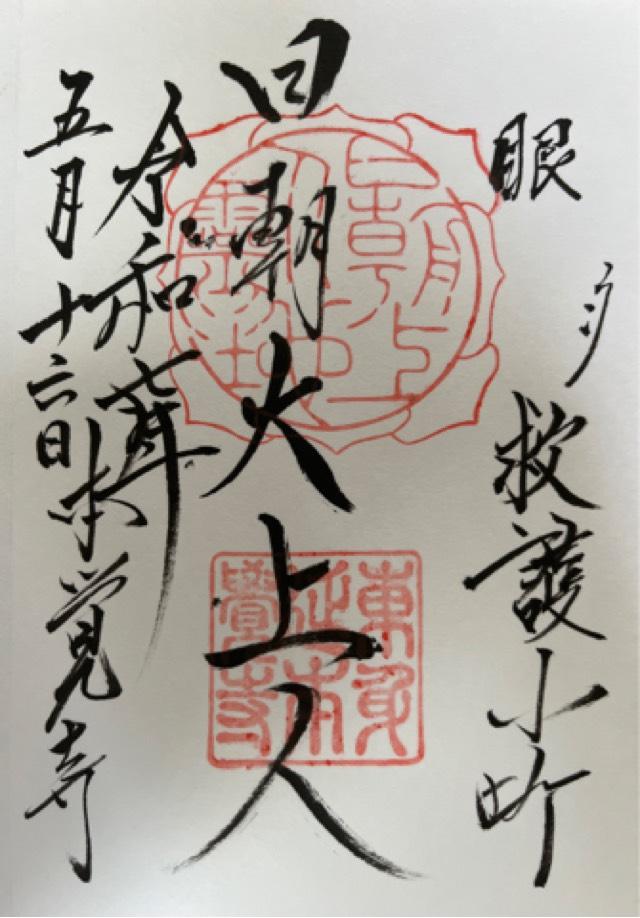 眼
救護 小町
日朝大上人
令和七年
五月十六日 本覚寺
東身
延本
覺寺